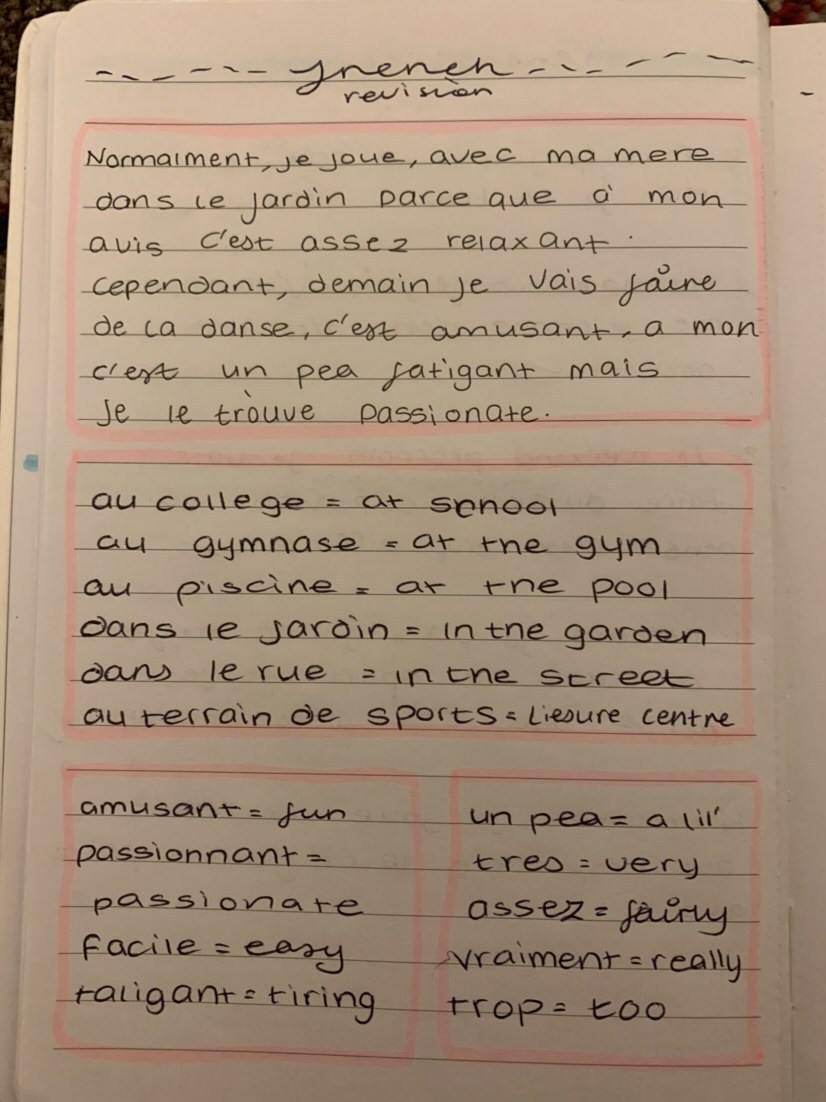 french
revision
Normalment, je joue, avec ma mere
dans le jardin parce que a' mon
avis c'est assez relaxant.
cependant, demain je vais faire
de la danse, c'est amusant, a mon
c'est un pea fatigant mais
je le tròuve passionate.
au college = at school
au gymnase = at the gym
au piscine = at the pool
dans le jardin = in the garden
dans le rue = in the street
au terrain de sports = liesure centre
amusant = fun
passionnant =
passionate
facile = easy
fatigant = tiring
un pea = a lil'
tres = very
assez = fairly
vraiment = really
trop = too